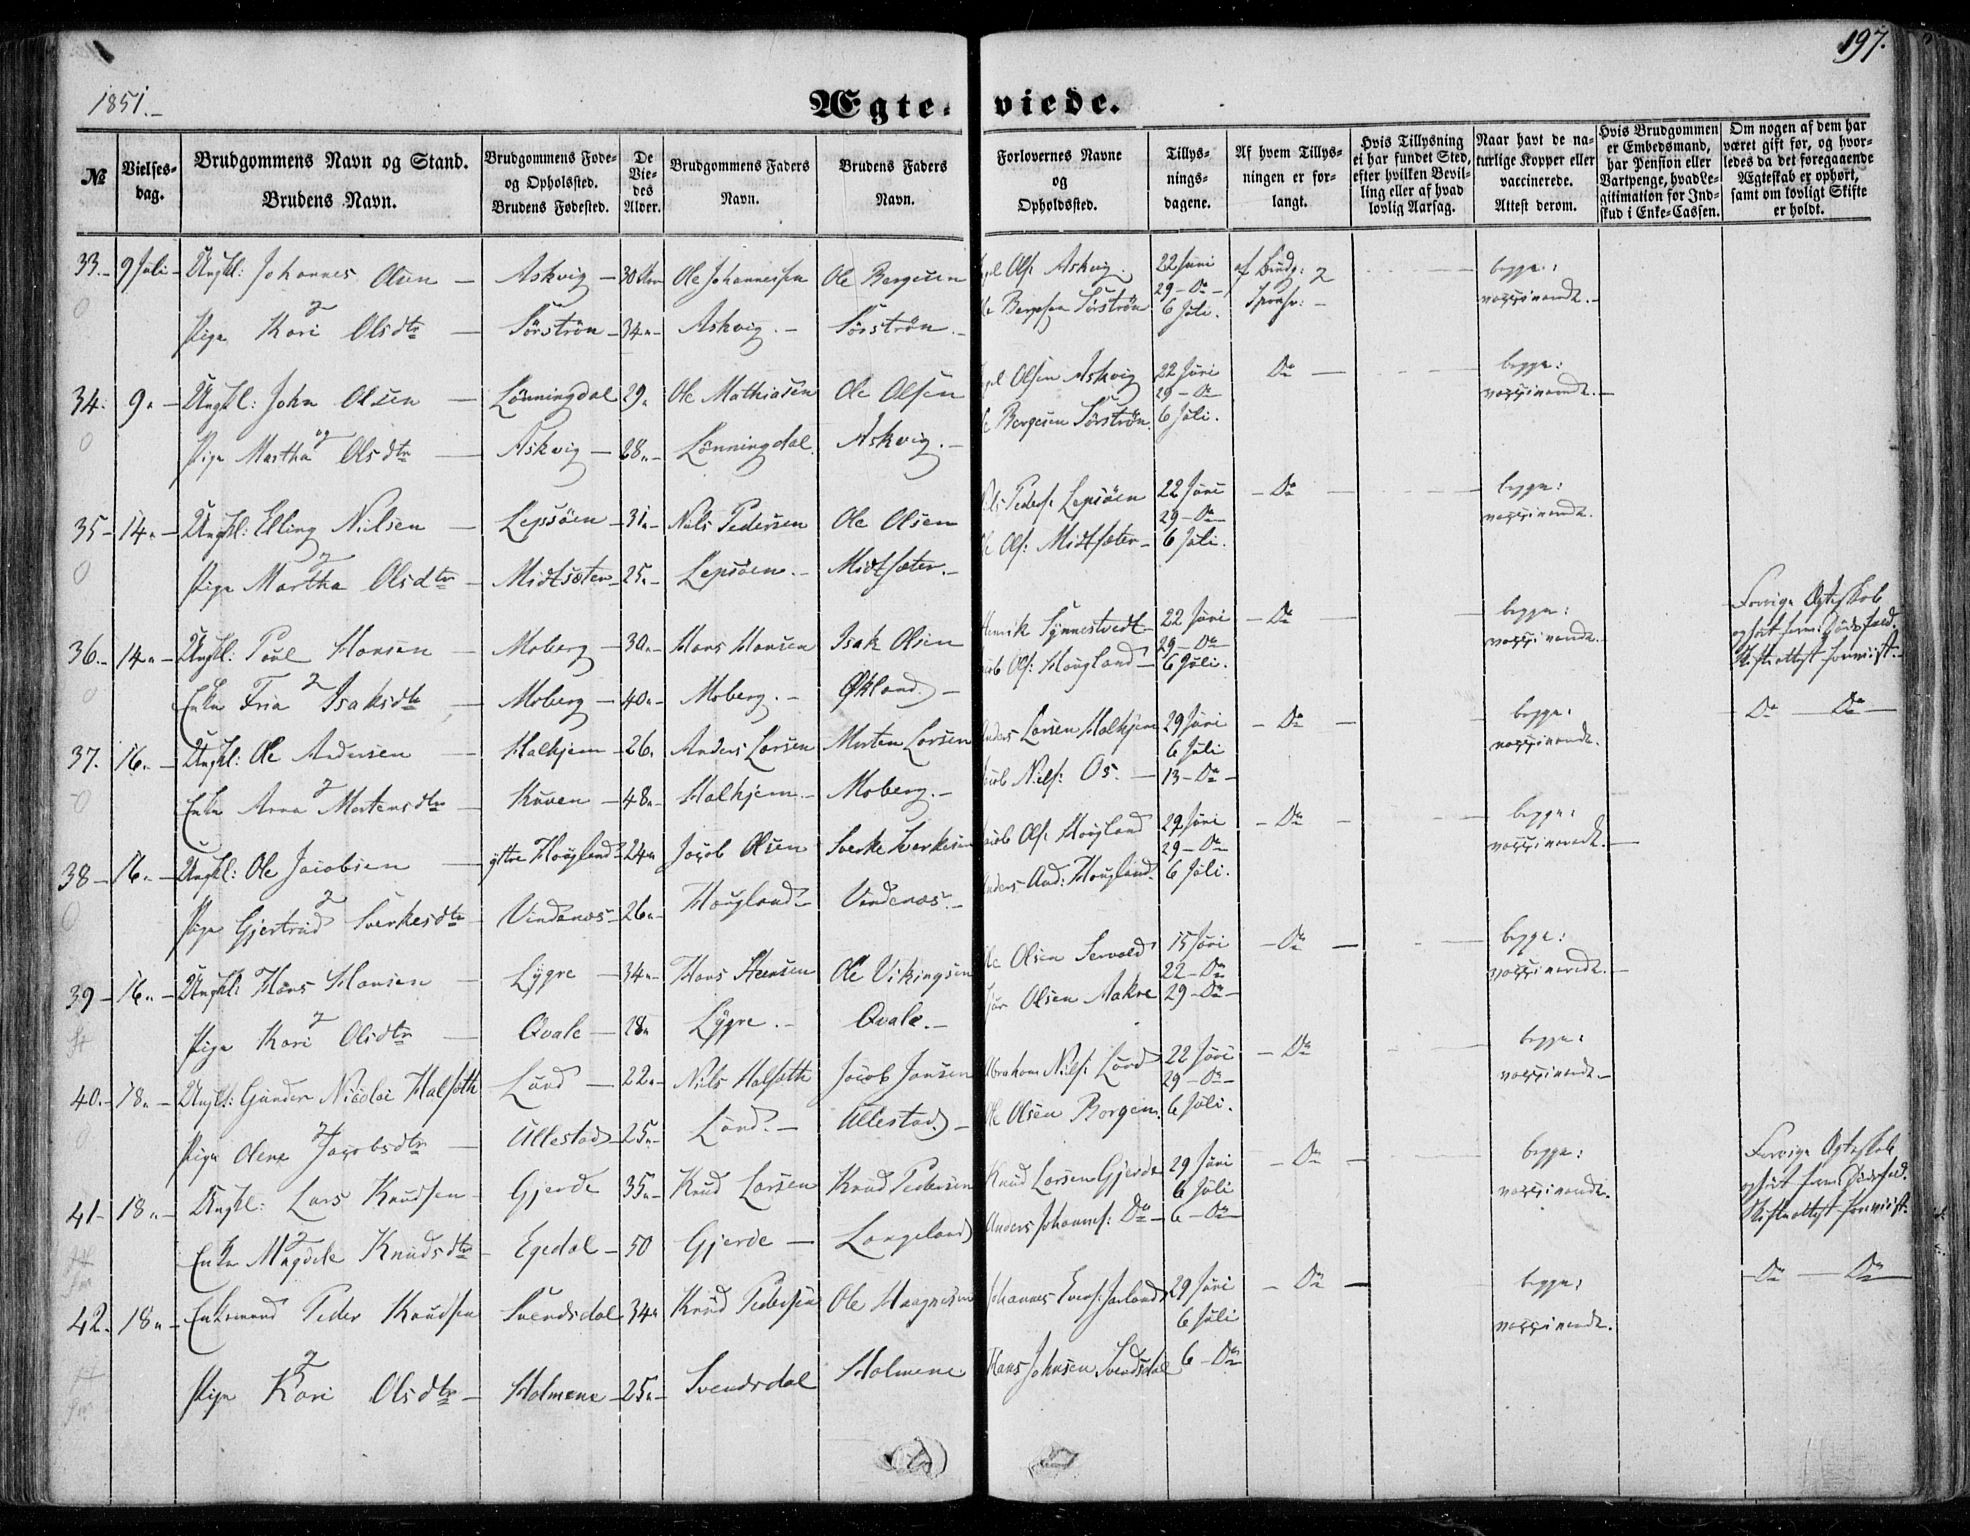 197.
1851.-
Ægteviede.
№
Vielses-dag.
Brudgommens Navn og Stand.
Brudens Navn.
Brudgommens Føde- og Opholdssted.
Brudens Fødested.
De Viedes Alder.
Brudgommens Faders Navn.
Brudens Faders Navn.
Forlovernes Navne og Opholdssted.
Tillysningsdagene.
Af hvem Tillysningen er forlangt.
Hvis Tillysning ei har fundet Sted, efter hvilken Bevilling eller af hvad lovlig Aarsag.
Naar havt de naturlige Kopper eller vaccinerede. Attest derom.
Hvis Brudgommen er Embedsmand, har Pension eller Vartpenge, hvad Legitimation for Indskud i Enke-Cassen.
Om nogen af dem har været gift før, og hvorledes da det foregaaende Ægteskab er ophørt, samt om lovligt Skifte er holdt.
33.- 9 Juli - Ungkl: Johannes Olsen - Askvig - 30 Ole Johannessen Ole Bergesen Olss. Askvig. 22 Juni af Brudg: begge:
29 - Do -
Pige Kari Olsdtr - Sørstrøn - 34 - Askvig. - Sørstrøn. - Bergesen Sørstrøn 6 Juli. vaccinerede. -
34. 9. - Ungkl: John Olsen - Lønningdal 29. Ole Mathiasen Ole Olsen Olsen Askvig 22 Juni Do - begge:
29 - Do
Pige Martha Olsdtr - Askvig - 28. - Lønningdal. Askvig. - Bergesen Sørstrøn. 6 Juli. vaccinerede. -
35 - 14. - Ungkl: Elling Nielsen - Lepsøen - 31. - Niels Pedersen Ole Olsen Peders. Lepsøen 22 Juni - Do - begge:
29 - Do -
Pige Martha Olsdtr - Midtsæter - 25. - Lepsøen. - Midtsæter. - Ols: Midtsæter - 6 Juli. vaccinerede.
36. - 14. - Ungkl: Poul Hansen - Moberg - 30. - Hans Hansen Isak Olsen Henrik Tynnestvedt - 22 Juni - Do - begge: Forrige Ægteskab
29 - Do ophørt form: Dødsfald.
Enke Isaksdtr - Moberg - 40. - Moberg. - Økland. - Ols: Hougland - 6 Juli. vaccinerede. Skifteattest foreviist. -
37. 16. - Ungkl: Ole Andersen - Halhjem - 26. Anders Larsen Morten Larsen Anders Larsen Halhjem 29 Juni - Do - begge: - Do - Do -
6 Juli
Enke Anna Mortensdtr - Kuven - 48. - Halhjem. - Moberg. - Niels: Os. - 13 - Do - vaccinerede.
38 - 16. - Ungkl: Ole Jacobsen - yttre Hougland - 24. Jacob Olsen Sverke Sverkesen Jacob Ols: Hougland 22 Juni - Do - begge:
29 - Do -
Pige Gjertrud Sverkesdtr - Vindenæs - 26. - Hougland - Vindenæs. - Anders And: Hougland. 6 Juli. vaccinerede. -
39 - 16. - Ungkl: Hans Hansen - Lygre - 34. - Hans Steensen Ole Vikingsen Ole Olsen Sevold 15 Juni - Do - begge:
22 - Do
Pige Kari Olsdtr - Qvale - 28. Lygre. - Qvale. - Olsen Aakre 29 - Do - vaccinerede. -
40. - 18. - Ungkl: Gunder Nicolai Halsøth Lund - 22. - Niels Halsøth Jacob Jansen Abraham Niels: Lund 22 Juni - Do - begge:
29 - Do -
Pige Olene Jacobsdtr - Ullestad - 25. - Lund. - Ullestad. - Ole Olsen Borgen. 6 Juli. vaccinerede. -
41 - 18. - Ungkl: Lars Knudsen - Gjerde 35. - Knud Larsen Knud Pedersen Knud Larsen Gjerde 29 Juni - Do - begge: Forrige Ægteskab
6 Juli ophørt form: Dødsfald.
Enke Magdele Knudsdtr - Egedal - 50 Gjerde - Langeland Anders Johannes: Do - 6 - Do - vaccinerede. Skifteattest foreviist.
42. 18. - Enkemand Peder Knudsen Svendsdal 34. Knud Pedersen Ole Haagnesen Johannes Jarland 29 Juni - Do - begge: - Do - Do -
6 Juli
Pige Kari Olsdtr - Holmene - 25. - Svendsdal Holmene Hans Johnsen Svendsdal 6 - Do vaccinerede.